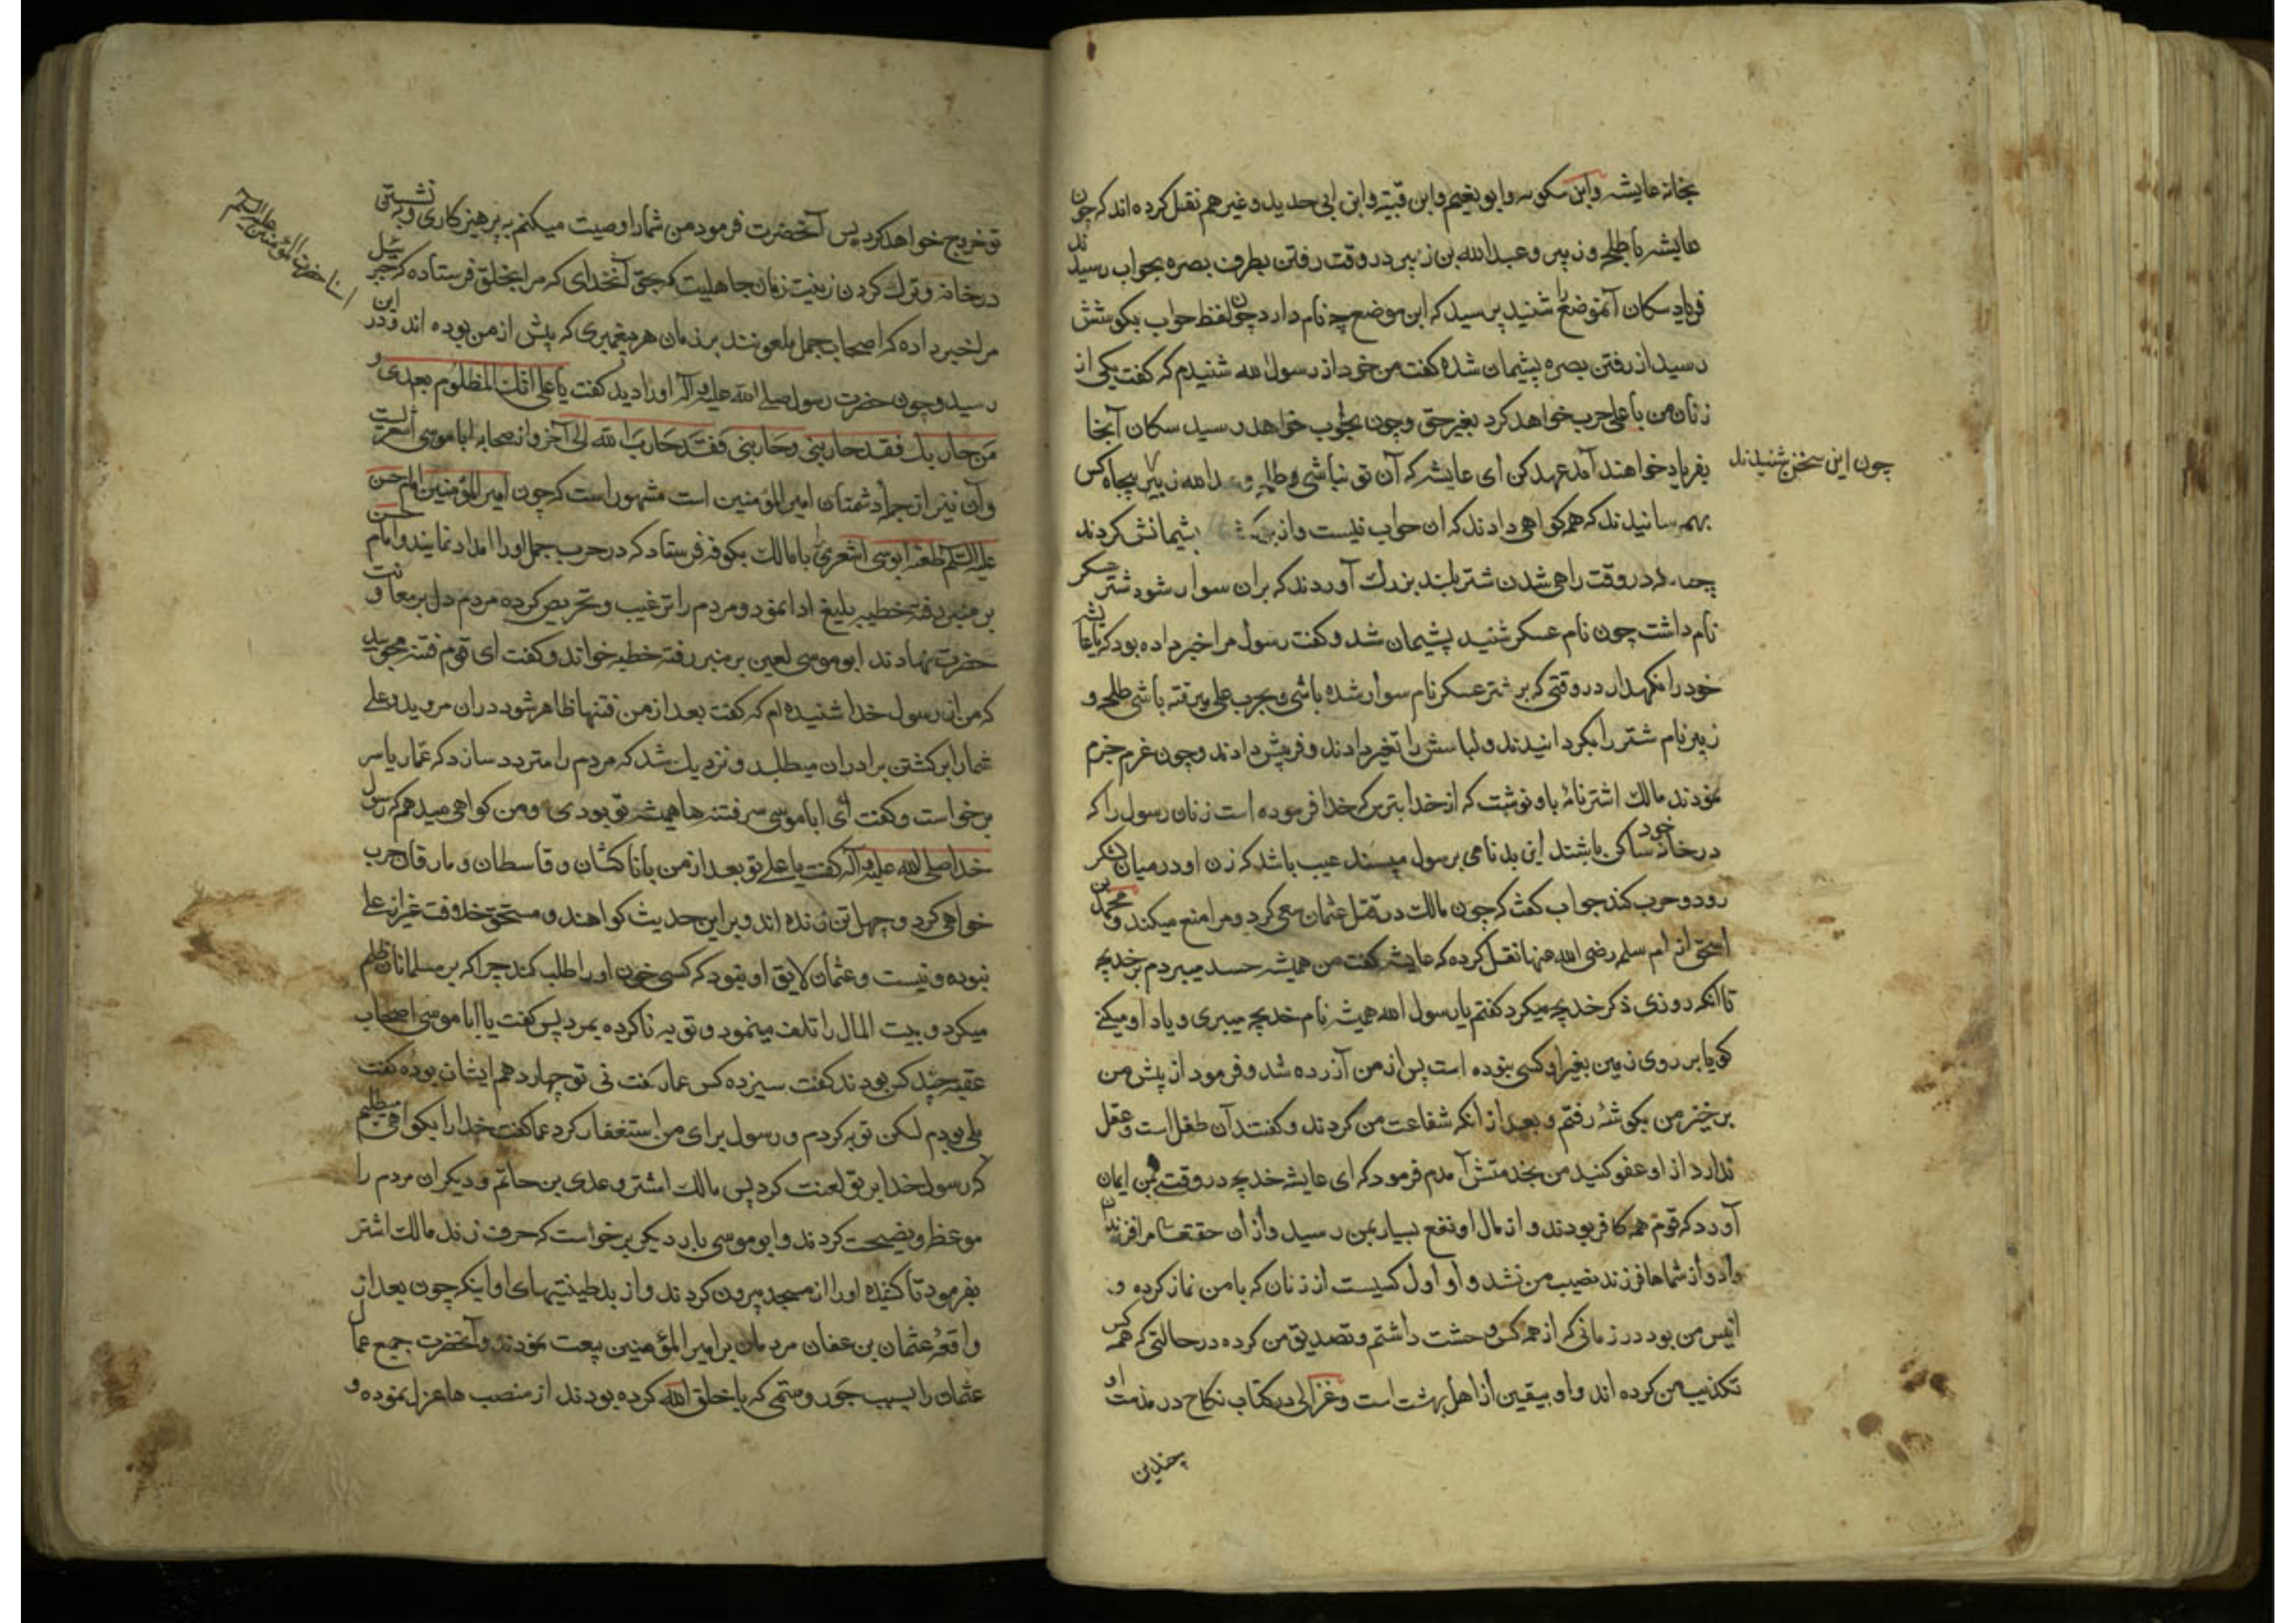 بخانه عایشه وابن مسکویه وابو نعیم وابن قتیبه وابن ابی حدید وغیرهم نقل کرده اند که چون
عایشه با طلحه وزبیر وعبدالله بن زبیر در وقت رفتن بطرف بصره بحواب رسیدند
فریاد سکان آنموضع را شنید پرسید که این موضع چه نام دارد چون لفظ حواب بکوشش
رسید از رفتن بصره پشیمان شده گفت من خود از رسول الله شنیدم که گفت یکی از
زنان من با علی حرب خواهد کرد بغیر حق وچون بحواب خواهد رسید سکان آنجا
بفریاد خواهند آمد عهد کن ای عایشه که آن تو نباشی وطلحه وعبدالله زبیر پنجاه کس
چون این سخن شنیدند
بهم رسانیدند که همه کواهی دادند که ان حواب نیست واز پشیمانش کردند
در وقت راهی شدن شتر بلند بزرک آوردند که بران سوار شود شتر عسکر
نام داشت چون نام عسکر شنید پشیمان شد وگفت رسول مرا خبر داده بود که یا عایشه
خود را نکهدار در وقتی که بر شتر عسکر نام سوار شده باشی وبحرب علی میرفته باشی طلحه و
زبیر نام شتر را بکردانیدند ولباسش را تغیر دادند وفریبش دادند وچون عزم جزم
نمودند مالک اشتر نامهٔ باو نوشت که از خدا بترس که خدا فرموده است زنان رسول را که
در خانه خود ساکن باشند این بدنامی برسول مپسند عیب باشد که زن او در میان لشکر
رود وحرب کند جواب گفت که چون مالک در قتل عثمان سعی کرد ومرا منع میکند ومحمد بن
اسحق از ام سلمه رضی الله عنها نقل کرده که عایشه گفت من همیشه حسد میبردم بر خدیجه
تا انکه روزی ذکر خدیجه میکرد گفتم یا رسول الله همیشه نام خدیجه میبری ویاد او میکنی
کویا بر روی زمین بغیر او کسی نبوده است پس از من آزرده شد وفرمود از پیش من
برخیز من بکوشهٔ رفتم وبعد از انکه شفاعت من کردند وگفتند آن طفل است وعقل
ندارد از او عفو کنید من بخدمتش آمدم فرمود که ای عایشه خدیجه در وقتی بمن ایمان
آورد که قوم همه کافر بودند واز مال او نفع بسیار بمن رسید واز ان حقتعالی مرا فرزندان
داد واز شماها فرزند نصیب من نشد واو اول کسیست از زنان که با من نماز کرده و
انیس من بود در زمانی که از همه کس وحشت داشتم وتصدیق من کرده در حالتی که همه کس
تکذیب من کرده اند واو بیقین از اهل بهشت است وغزالی در کتاب نکاح در مذمت او
چندین
تو خروج خواهد کرد پس آنحضرت فرمود من شما را وصیت میکنم به پرهیزکاری وبه نشستن
در خانه وترک کردن زینت زمان جاهلیت که بحق آنخدای که مرا بخلق فرستاده که جبرئیل
مرا خبر داده که اصحاب جمل ملعونند بر زمان هر پیغمبری که پیش از من بوده اند ودر این
رسید وچون حضرت رسول صلی الله علیه وآله او را دید گفت یا علی انک المظلوم بعدی و
من حاربک فقد حاربنی وحاربنی فقد حارب الله الی آخر واز صحابه ابا موسی اشعریست
وآن نیز از جمله دشمنان امیرالمؤمنین است مشهور است که چون امیرالمؤمنین امام حسن
علیه السلم ابو موسی اشعری را با مالک بکوفه فرستاد که در حرب جمل او را امداد نمایند وامام حسن
بر منبر رفته خطبه بلیغ ادا نمود ومردم را ترغیب وتحریص کرده مردم دل بر معاونت
حضرت نهادند ابو موسی لعین بر منبر رفته خطبه خواند وگفت ای قوم فتنه مجویید
که من از رسول خدا شنیده ام که گفت بعد از من فتنها ظاهر شود دران مروید وعلی
شما را بر کشتن برادران میطلبد ونزدیک شد که مردم را متردد سازد که عمار یاسر
برخواست وگفت ای ابا موسی سر فتنه ها همیشه تو بودی ومن کواهی میدهم که رسول
خدا صلی الله علیه وآله گفت یا علی تو بعد از من با ناکثان وقاسطان ومارقان حرب
خواهی کرد وچهل تن زنده اند وبر این حدیث کواهند ومستحق خلافت غیر از علی
نبوده ونیست وعثمان لایق او نبود که کسی خون او را طلب کند چرا که بر مسلمانان ظلم
میکرد وبیت المال را تلف مینمود وتوبه ناکرده بمرد پس گفت یا ابا موسی اصحاب
عقبه چند کس بودند گفت سیزده کس عمار گفت نی تو چهاردهم ایشان بوده گفت
بلی بودم لکن توبه کردم ورسول برای من استغفار کرد عمار گفت خدا را بکواهی میطلبم
که رسول خدا بر تو لعنت کرد پس مالک اشتر وعدی بن حاتم ودیکران مردم را
موعظه ونصیحت کردند وابو موسی بار دیکر برخواست که حرف زند مالک اشتر
بفرمود تا کشیده او را از مسجد بیرون کردند واز بدطینتیهای او اینکه چون بعد از
واقعهٔ عثمان بن عفان مردمان بر امیر المؤمنین بیعت نمودند وآنحضرت جمیع عمال
عثمان را بسبب جور وستمی که با خلق الله کرده بودند از منصب ها عزل نموده و